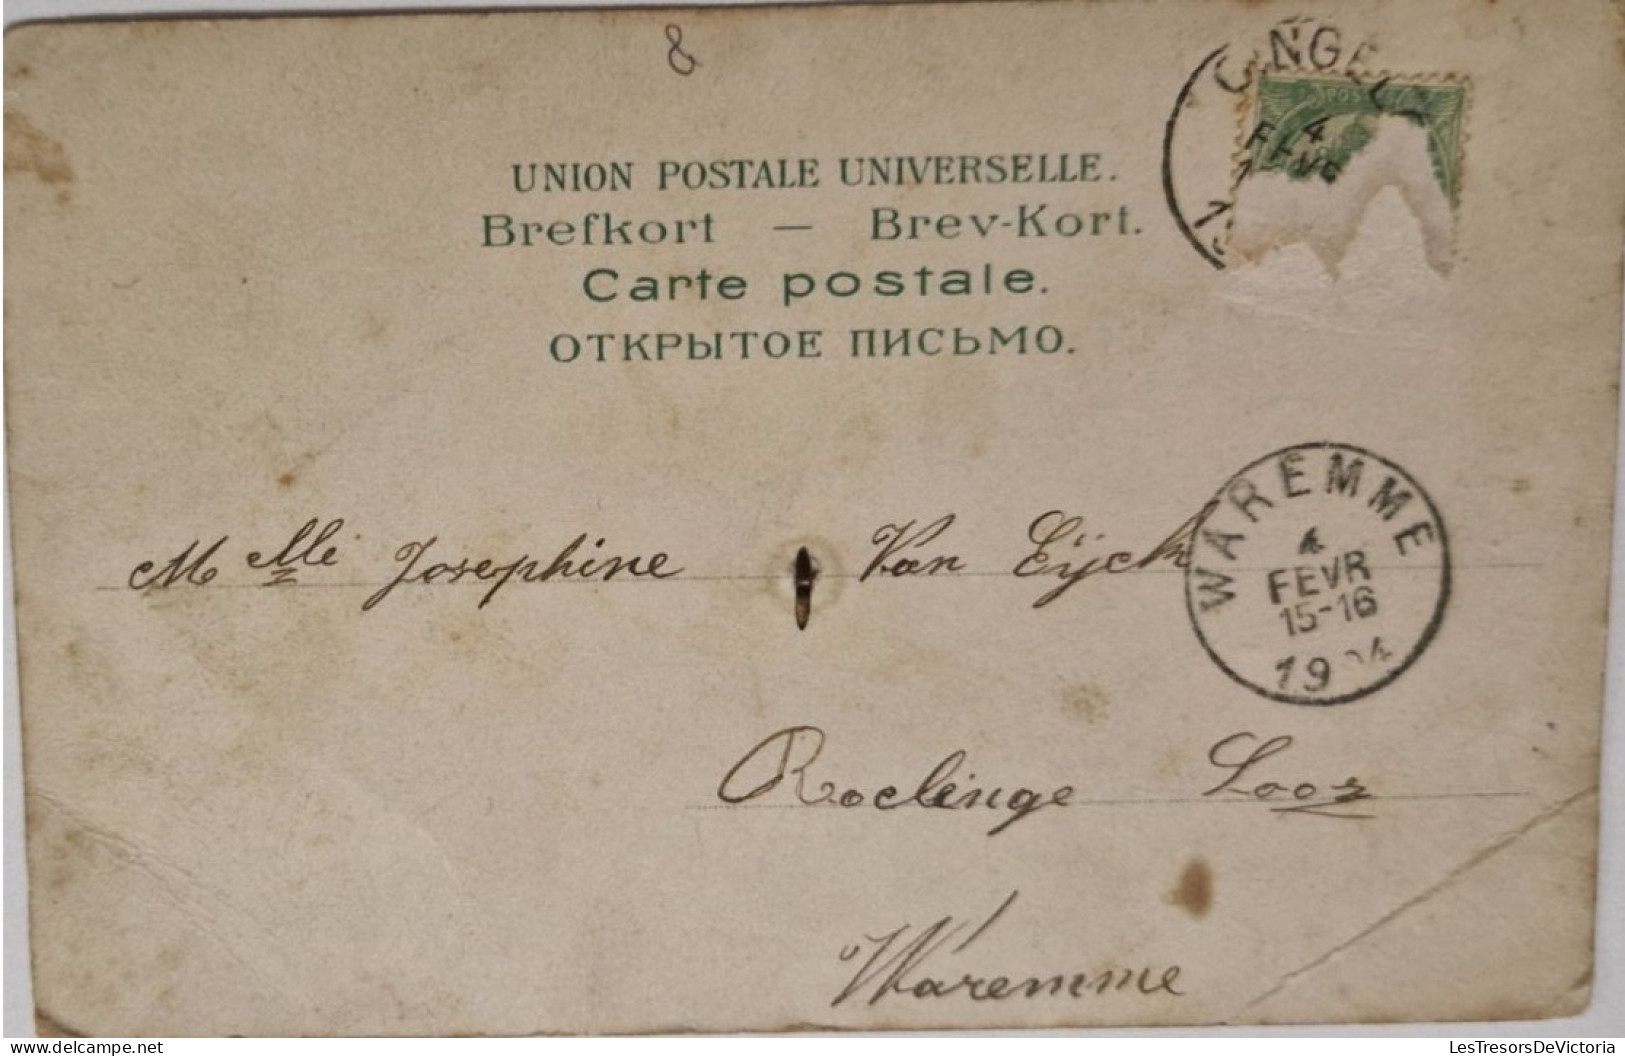 &
UNION POSTALE UNIVERSELLE.
Brefkort — Brev-Kort.
Carte postale.
ОТКРЫТОЕ ПИСЬМО.
4
FEVR
WAREMME
4
FEVR
15-16
1904
M Mlle Josephine Van Eÿck
Roclinge Looz
Waremme
LesTresorsDeVictoria
LesTresorsDeVictoria.com